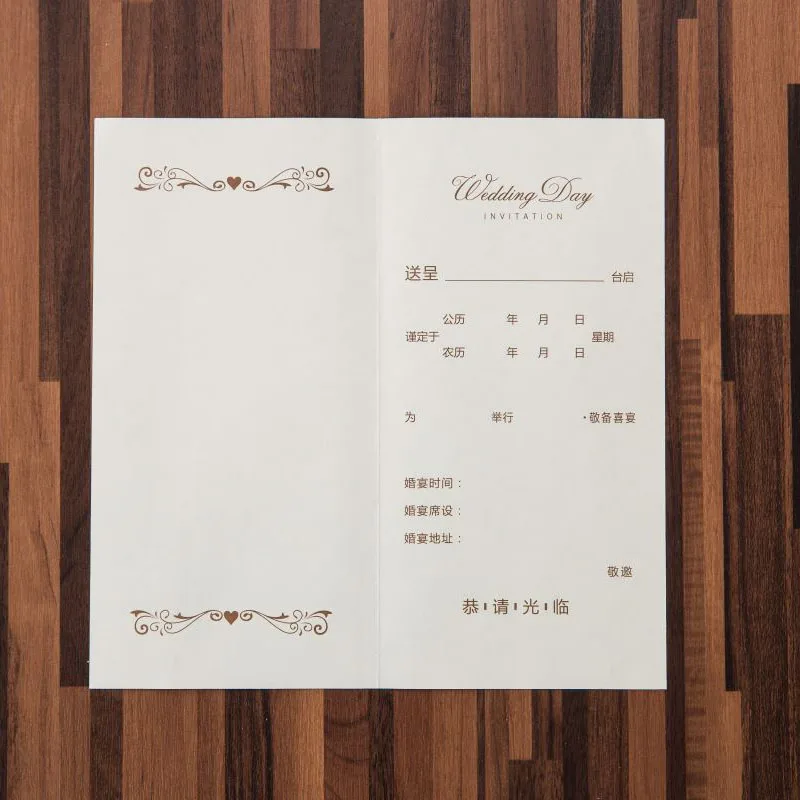 Wedding Day
INVITATION
送呈 台启
公历 年 月 日
谨定于 星期
农历 年 月 日
为 举行 ·敬备喜宴
婚宴时间：
婚宴席设：
婚宴地址：
敬邀
恭·请·光·临